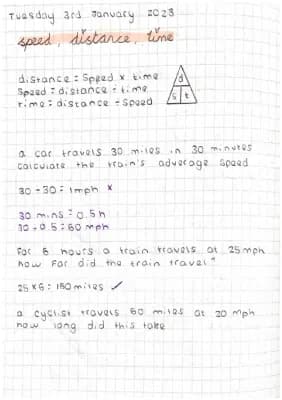 Tuesday 3rd January 2023
speed, distance, time
distance = Speed x time
Speed = distance ÷ time
time = distance ÷ speed
d
s t
a car travels 30 miles in 30 minutes
calculate the train's adverage speed
30 ÷ 30 = 1mph x
30 mins = 0.5h
30 ÷ 0.5 = 60 mph
For 6 hours a train travels at 25mph
how far did the train travel?
25 x 6 = 150 miles ✓
a cyclist travels 60 miles at 20 mph
how long did this take